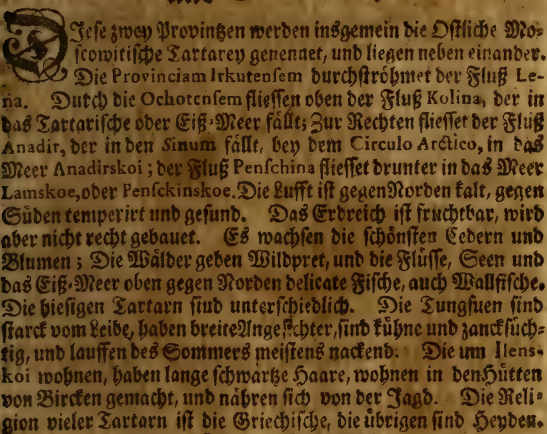 Diese zwey Provintzen werden insgemein die Ostliche Mos-
scowitische Tartarey genennet, und liegen neben einander.
Die Provinciam Irkutensem durchströhmet der Fluß Le-
na. Dutch die Ochotensem fliessen oben der Fluß Kolina, der in
das Tartarische oder Eiß-Meer fällt; Zur Rechten fliesset der Fluß
Anadir, der in den Sinum fällt, bey dem Circulo Arctico, in das
Meer Anadirskoi; der Fluß Penschina fliesset drunter in das Meer
Lamskoe, oder Pensckinskoe. Die Lufft ist gegen Norden kalt, gegen
Süden temperirt und gesund. Das Erdreich ist fruchtbar, wird
aber nicht recht gebauet. Es wachsen die schönsten Cedern und
Blumen; Die Wälder geben Wildpret, und die Flüsse, Seen und
das Eiß-Meer oben gegen Norden delicate Fische, auch Wallfische.
Die hiesigen Tartarn siud unterschiedlich. Die Tungsuen sind
starck vom Leibe, haben breite Angesichter, sind kühne und zancksüch-
tig, und lauffen des Sommers meistens nackend. Die um Ilens-
koi wohnen, haben lange schwartze Haare, wohnen in den Hütten
von Bircken gemacht, und nähren sich von der Jagd. Die Reli-
gion vieler Tartarn ist die Griechische, die übrigen sind Heyden.